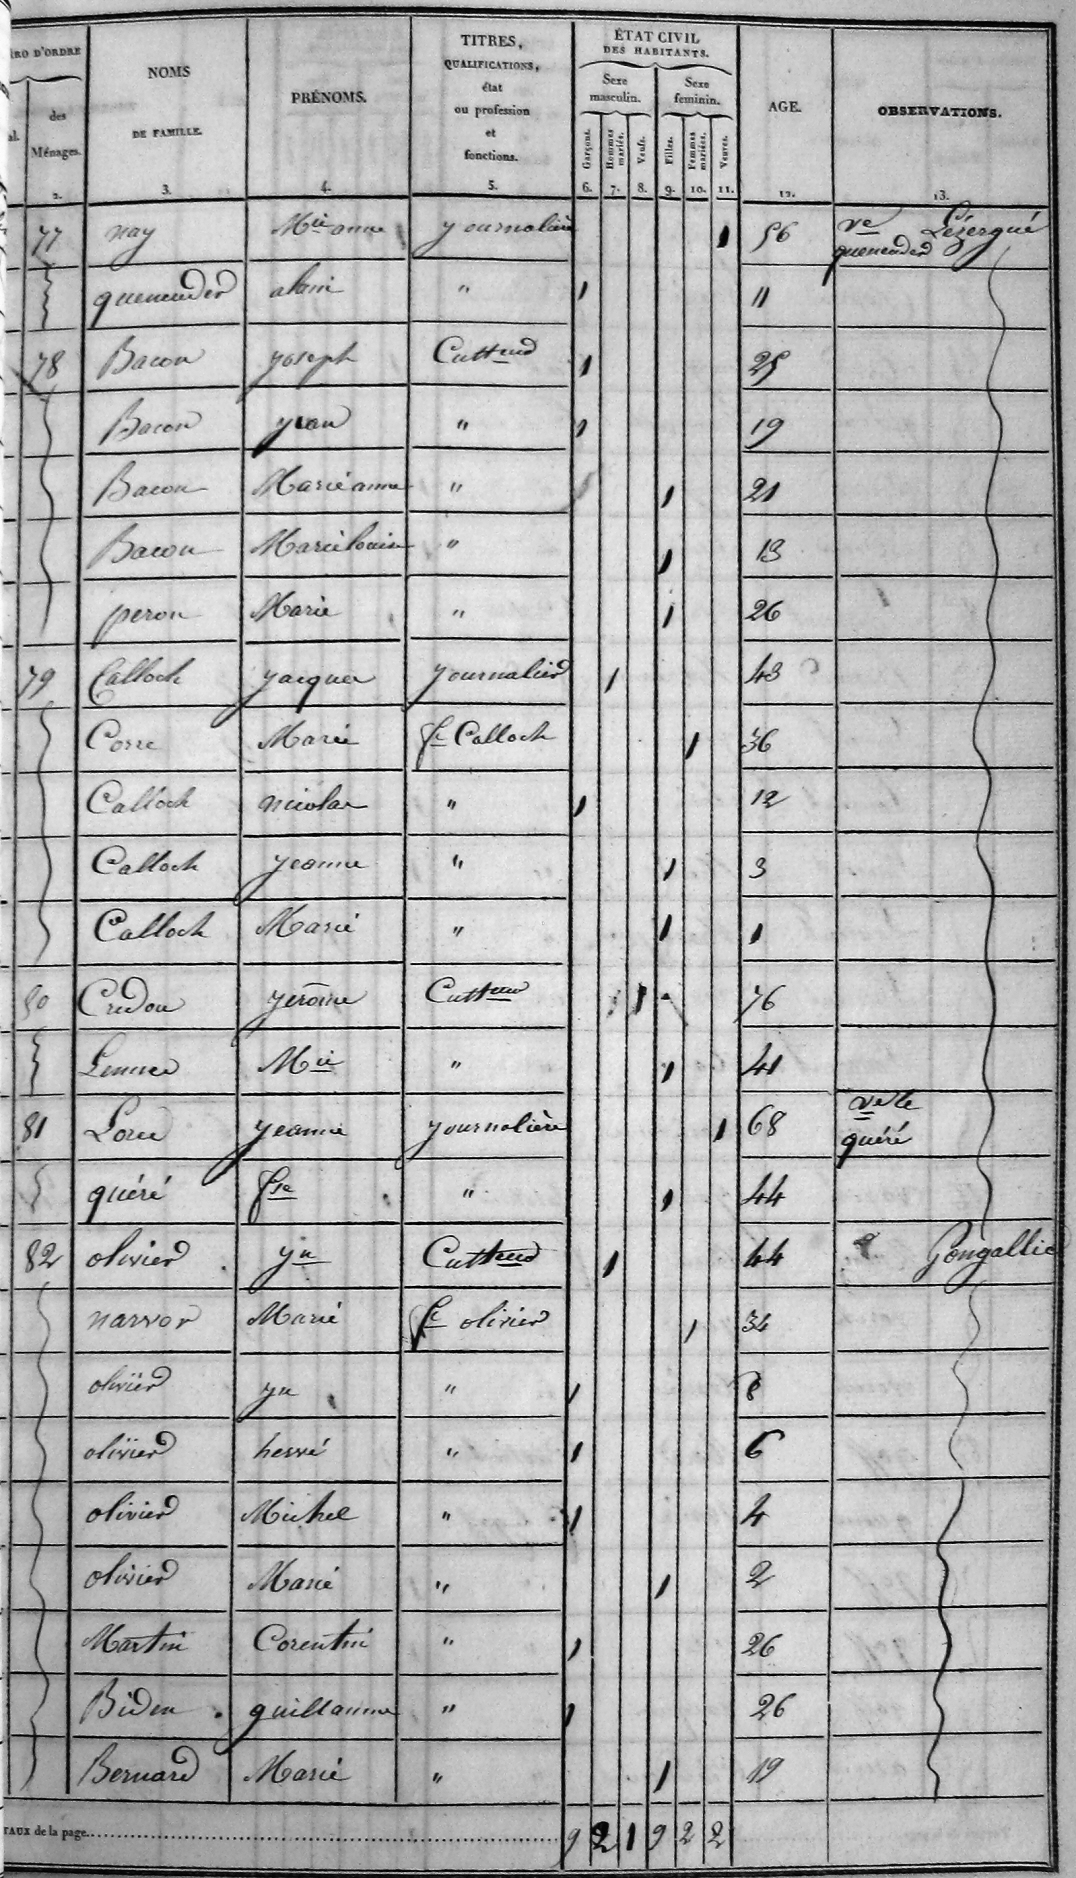 RO D'ORDRE
al.
des
Ménages.
2.
NOMS
DE FAMILLE.
3.
PRÉNOMS.
4.
TITRES,
QUALIFICATIONS,
état
ou profession
et
fonctions.
5.
ÉTAT CIVIL
DES HABITANTS.
Sexe
masculin.
Sexe
feminin.
Garçons.
Hommes
mariés.
Veufs.
Filles.
Femmes
mariées.
Veuves.
6. 7. 8. 9. 10. 11.
AGE.
12.
OBSERVATIONS.
13.
77 nay Mie anne journalière 1 56 ve Lézergué
quenender
quenender alain " 1 11
78 Bacon joseph Cultteur 1 25
Bacon yvon " 1 19
Bacon Marie anne " 1 21
Bacon Marie louise " 1 13
peron Marie " 1 26
79 Calloch jacques journalier 1 43
Corre Marie fe Calloch 1 36
Calloch nicolas " 1 12
Calloch jeanne " 1 3
Calloch Marie " 1 1
80 Credou jerôme Cultteur 1 76
Mie " 1 41
81 jeanne journalière 1 68 ve le
quéré
quéré fse " 1 44
82 olivier jn Cultteur 1 44 Pongallic
narvor Marie fe olivier 1 34
olivier jn " 1 8
olivier hervé " 1 6
olivier Michel " 1 4
olivier Marie " 1 2
Martin Corentin " 1 26
Biden guillaume " 1 26
Bernard Marie " 1 19
TAUX de la page 9 2 1 9 2 2